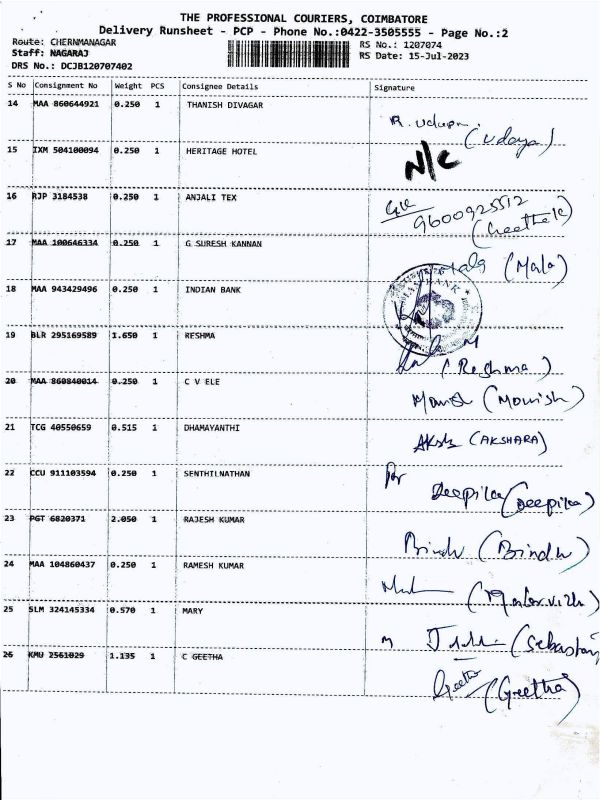 THE PROFESSIONAL COURIERS, COIMBATORE
Delivery Runsheet - PCP - Phone No.:0422-3505555 - Page No.:2
Route: CHERNMANAGAR
RS No.: 1207074
Staff: NAGARAJ
RS Date: 15-Jul-2023
DRS No.: DCJB120707402
S No Consignment No Weight PCS Consignee Details Signature
14 MAA 860644921 0.250 1 THANISH DIVAGAR
R. Udaya (Udaya)
15 IXM 504100094 0.250 1 HERITAGE HOTEL
N/C
16 RJP 3184538 0.250 1 ANJALI TEX
9600925512
17 MAA 100646334 0.250 1 G SURESH KANNAN
Mala (Mala)
18 MAA 943429496 0.250 1 INDIAN BANK
BANK
19 BLR 295169589 1.650 1 RESHMA
(Reshma)
20 MAA 860840014 0.250 1 C V ELE
(Mounish)
21 TCG 40550659 0.515 1 DHAMAYANTHI
(AKSHARA)
22 CCU 911103594 0.250 1 SENTHILNATHAN
Deepika (Deepika)
23 PGT 6820371 2.050 1 RAJESH KUMAR
Bindu (Bindu)
24 MAA 104860437 0.250 1 RAMESH KUMAR
25 SLM 324145334 0.570 1 MARY
26 KMU 2561029 1.135 1 C GEETHA
Geetha (Geetha)